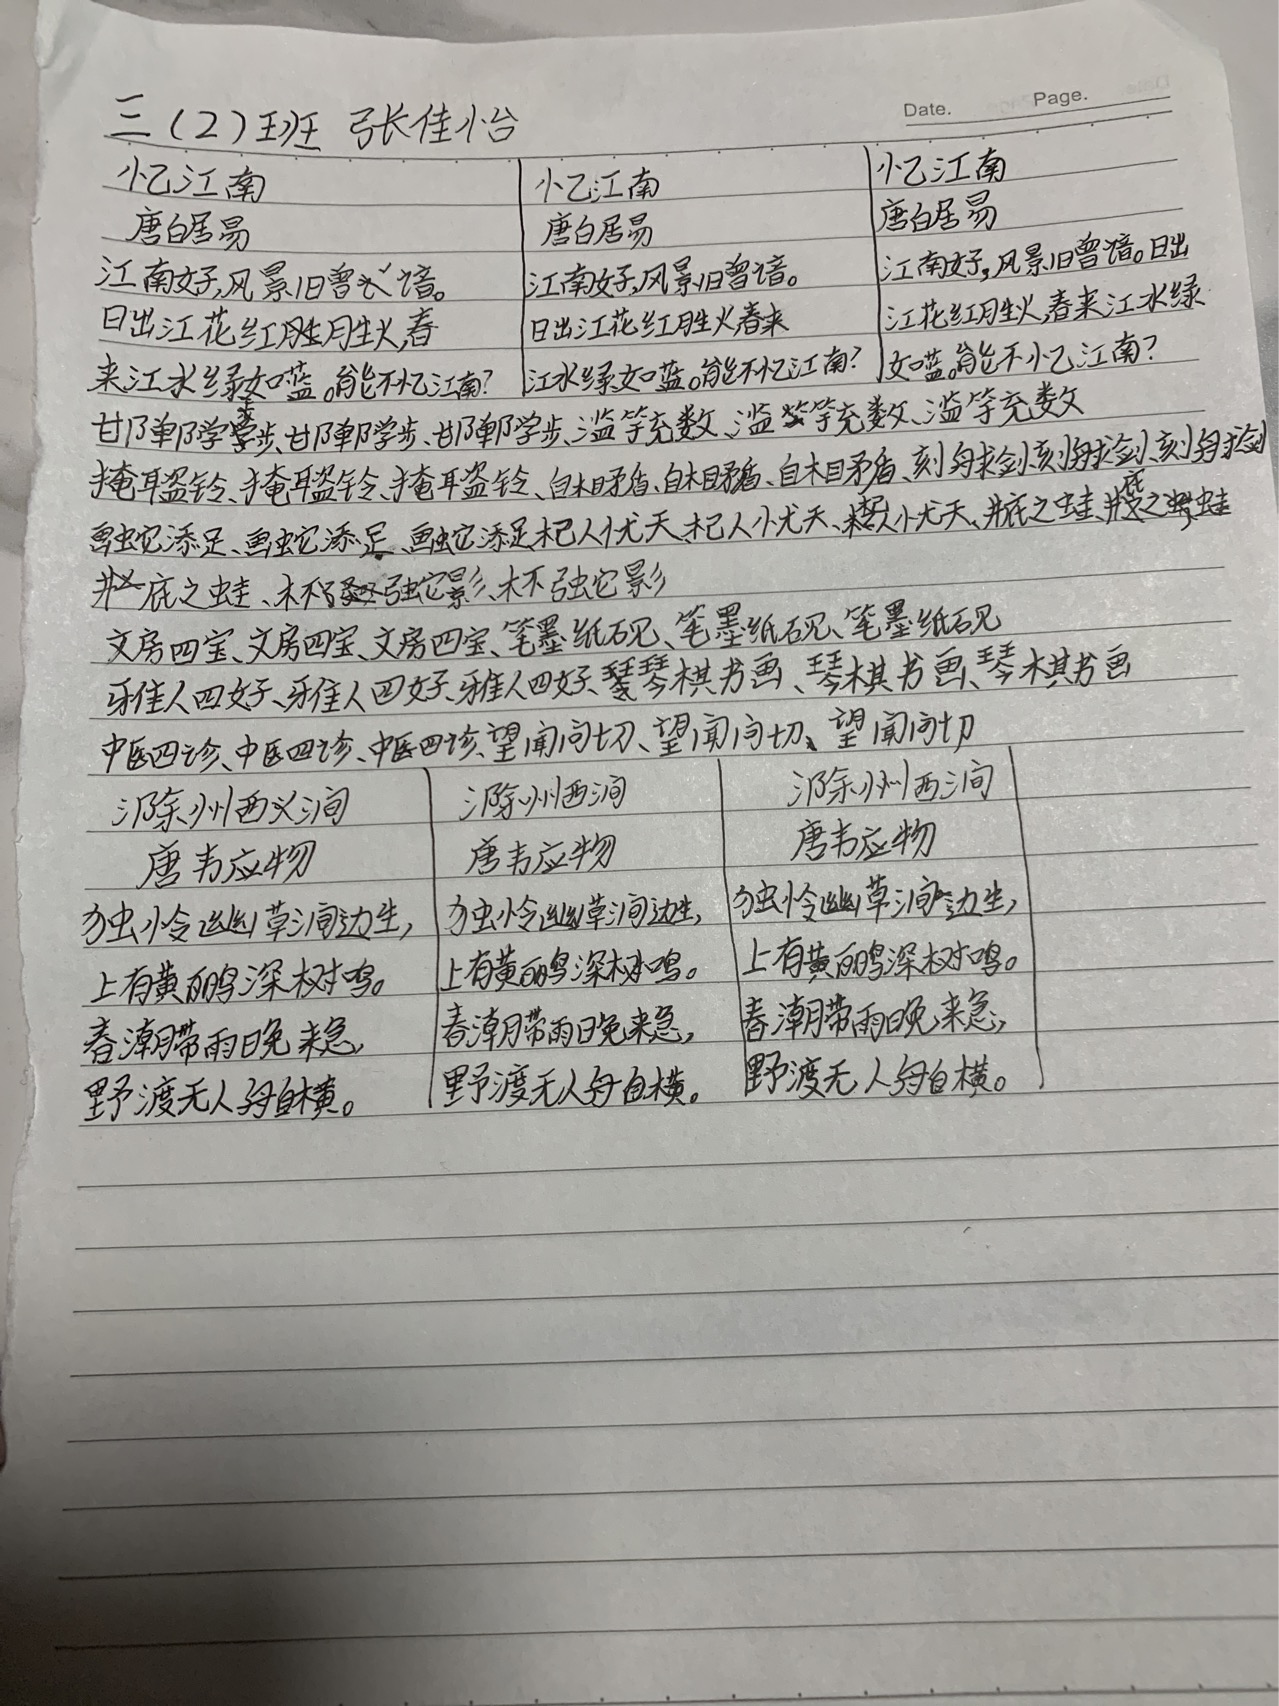 Date. Page.
三（2）班 张佳怡
忆江南 忆江南 忆江南
唐白居易 唐白居易 唐白居易
江南好,风景旧曾谙。 江南好,风景旧曾谙。 江南好,风景旧曾谙。日出
日出江花红胜月生火,春 日出江花红胜火,春来 江花红胜火,春来江水绿
来江水绿如蓝。能不忆江南? 江水绿如蓝。能不忆江南? 如蓝。能不忆江南?
邯郸学步、邯郸学步、邯郸学步、滥竽充数、滥竽充数、滥竽充数
掩耳盗铃、掩耳盗铃、掩耳盗铃、自相矛盾、自相矛盾、自相矛盾、刻舟求剑、刻舟求剑、刻舟求剑
画蛇添足、画蛇添足、画蛇添足、杞人忧天、杞人忧天、杞人忧天、井底之蛙、井底之蛙
井底之蛙、杯弓蛇影、杯弓蛇影
文房四宝、文房四宝、文房四宝、笔墨纸砚、笔墨纸砚、笔墨纸砚
雅人四好、雅人四好、雅人四好、琴棋书画、琴棋书画、琴棋书画
中医四诊、中医四诊、中医四诊、望闻问切、望闻问切、望闻问切
滁州西涧 滁州西涧 滁州西涧
唐韦应物 唐韦应物 唐韦应物
独怜幽草涧边生, 独怜幽草涧边生, 独怜幽草涧边生,
上有黄鹂深树鸣。 上有黄鹂深树鸣。 上有黄鹂深树鸣。
春潮带雨晚来急, 春潮带雨晚来急, 春潮带雨晚来急,
野渡无人舟自横。 野渡无人舟自横。 野渡无人舟自横。